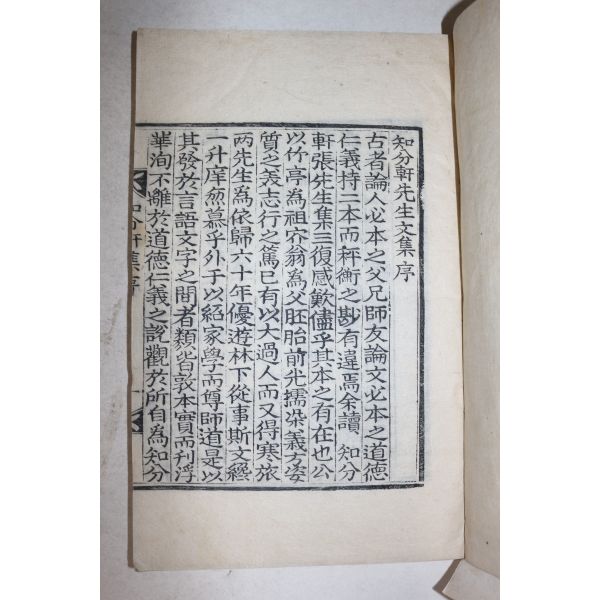 知分軒先生文集序
古者論人必本之父兄師友論文必本之道德
仁義持二本而秤衡之尠有違焉余讀 知分
軒張先生集三復感歎儘乎其本之有在也公
以竹亭為祖 翁為父胚胎前光擩染義方姿
質之美志行之篤已有以大過人而又得寒旅
两先生為依歸六十年優遊林下從事斯文纔
一升庠 慕乎外于以紹家學而尊師道是以
其發於言語文字之間者類皆敦本實而刋浮
華洵不離於道德仁義之說觀於所自為知分
知分軒集序